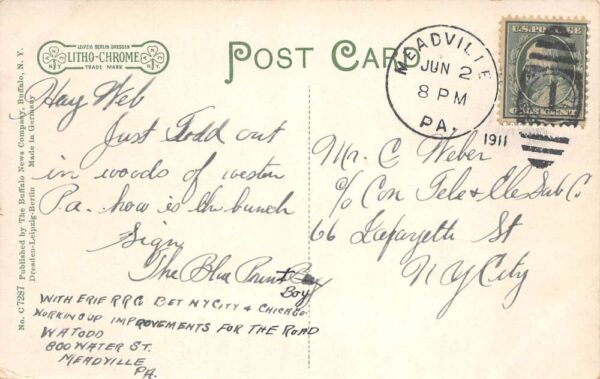 LEIPZIG BERLIN DRESDEN
LITHO-CHROME
TRADE MARK
POST CARD
MEADVILLE
JUN 2
8 PM
PA.
1911
U.S. POSTAGE
No. C 7287 Published by The Buffalo News Company, Buffalo, N. Y.
Dresden-Leipzig-Berlin Made in Germany
Hay Web
Just Todd out
in woods of western
Pa. how is the bunch
Sign
The Blue Print Boy
Boy
WITH ERIE RRG BET NYCITY & CHICAGO
WORKING UP IMPROVEMENTS FOR THE ROAD
WATODD
800 WATER ST.
MEADVILLE
PA.
Mr. C Weber
c/o Con Tele & Ele Sub Co
66 Lafayette St
N Y City